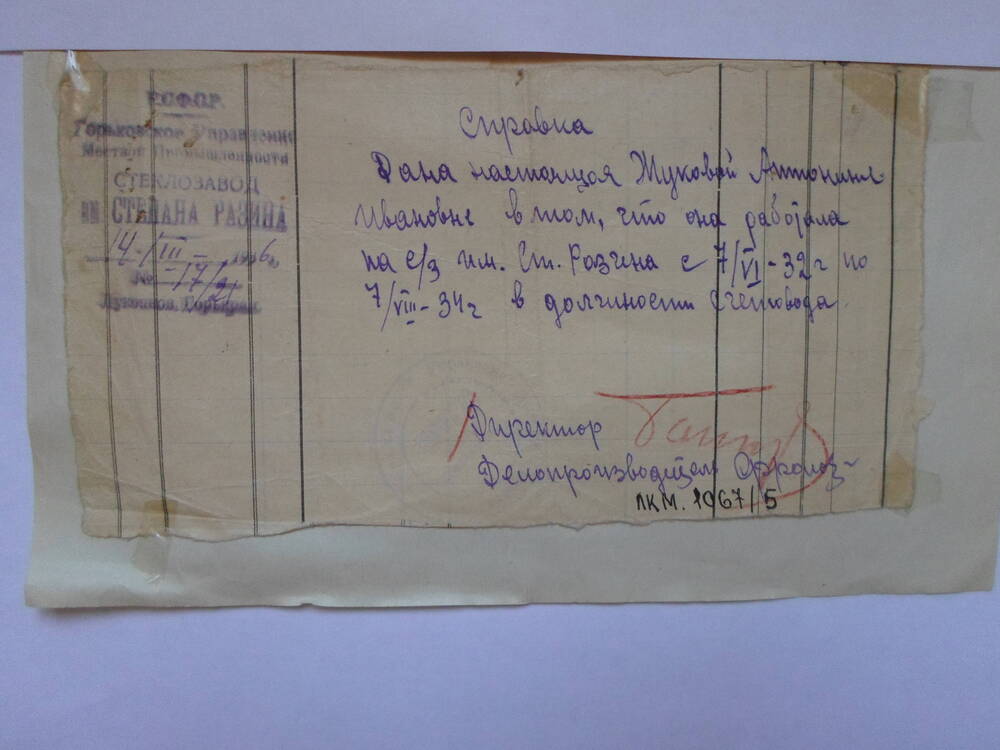 РСФСР
Горьковское Управление
Местной Промышленности
СТЕКЛОЗАВОД
им СТЕПАНА РАЗИНА
14-/III- 1936г.
№ 17/
Справка
Дана настоящая Жуковой Антонине
Ивановне в том, что она работала
на с/з им. Ст. Разина с 7/VI-32г по
7/VIII-34г в должности Счетовода.
Директор
Делопроизводитель
ЛКМ. 1067/5